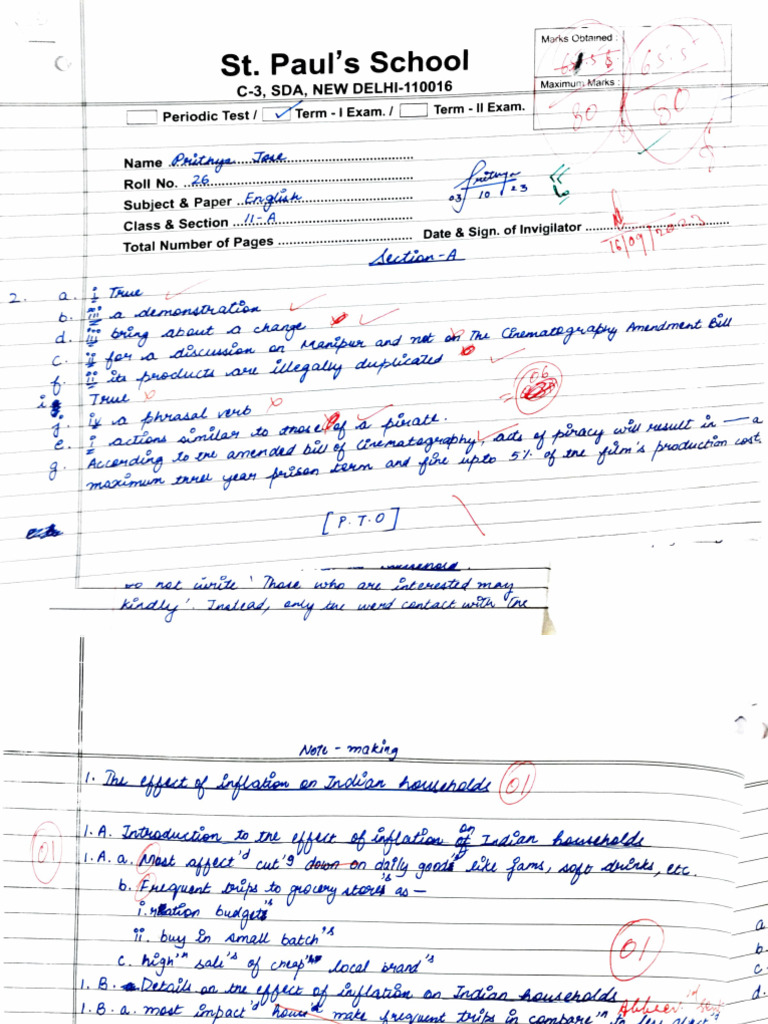 St. Paul's School
C-3, SDA, NEW DELHI-110016
Marks Obtained :
65.5
Maximum Marks :
80
80
Periodic Test / Term - I Exam. / Term - II Exam.
Name Prithya Jose
Roll No. 26
Subject & Paper English
Class & Section 11-A
Total Number of Pages
Prithya
03 10 23
Date & Sign. of Invigilator
16/09/2023
Section-A
2. a. i True
b. iii a demonstration
d. iii bring about a change
c. ii for a discussion on Manipur and not on The Cinematography Amendment Bill
f. ii its products are illegally duplicated
i. True
06
j. iv a phrasal verb
e. i actions similar to those of a pirate.
g. According to the amended bill of Cinematography, acts of piracy will result in — a
maximum three year prison term and fine upto 5% of the film's production cost.
[P.T.O]
Do not write 'Those who are interested may
kindly'. Instead, only the word contact with the
Note - making
1. The effect of inflation on Indian households 01
1.A. Introduction to the effect of inflation on Indian households
01
1.A. a. Most affect'd cut'g down on daily goods like jams, soft drinks, etc.
b. Frequent trips to grocery store's as —
i. ration budget's
ii. buy in small batch's
01
c. high'n sale's of cheap local brand's
1.B. Details on the effect of inflation on Indian households
1.B. a. most impact'd make frequent trips in compare'n
a.
b.
c.
d.